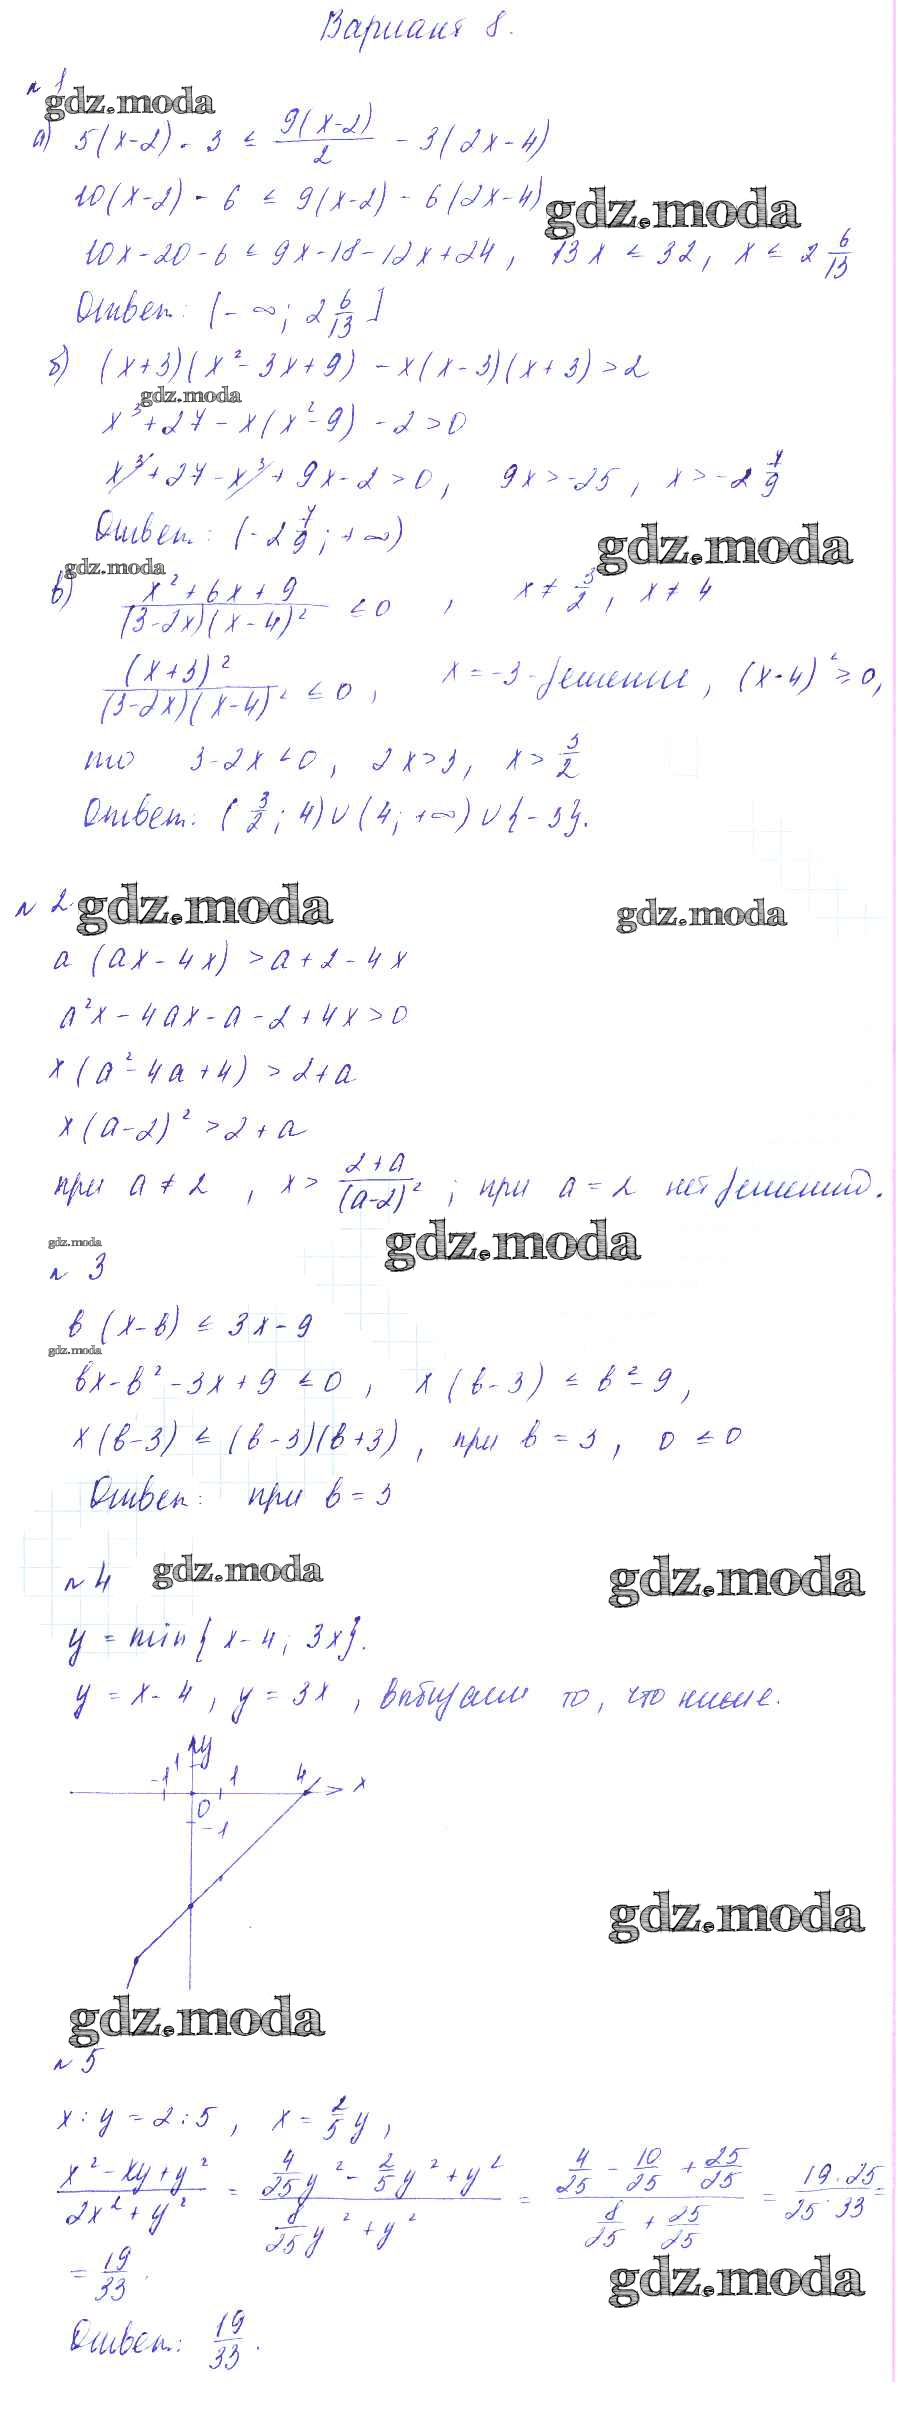 Вариант 8.
№ 1
gdz.moda
а) 5(x-2) - 3 ≤ 9(x-2)/2 - 3(2x-4)
10(x-2) - 6 ≤ 9(x-2) - 6(2x-4)
gdz.moda
10x-20-6 ≤ 9x-18-12x+24, 13x ≤ 32, x ≤ 2 6/13
Ответ: (-∞; 2 6/13]
б) (x+3)(x²-3x+9) - x(x-3)(x+3) > 2
gdz.moda
x³+27-x(x²-9) - 2 > 0
x³+27-x³+9x-2 > 0, 9x > -25, x > -2 7/9
Ответ: (-2 7/9; +∞)
gdz.moda
gdz.moda
в) x²+6x+9/(3-2x)(x-4)² ≤ 0, x ≠ 3/2, x ≠ 4
(x+3)²/(3-2x)(x-4)² ≤ 0, x = -3 - решение, (x-4)² ≥ 0,
то 3-2x < 0, 2x > 3, x > 3/2
Ответ: (3/2; 4) ∪ (4; +∞) ∪ {-3}.
№ 2
gdz.moda
gdz.moda
a (ax - 4x) > a + 2 - 4x
a²x - 4ax - a - 2 + 4x > 0
x (a² - 4a + 4) > 2 + a
x (a-2)² > 2 + a
при a ≠ 2, x > 2+a/(a-2)²; при a = 2 нет решений.
gdz.moda
gdz.moda
№ 3
в (x-в) ≤ 3x - 9
gdz.moda
вx - в² - 3x + 9 ≤ 0, x (в-3) ≤ в² - 9,
x (в-3) ≤ (в-3)(в+3), при в = 3, 0 ≤ 0
Ответ: при в = 3
№ 4
gdz.moda
gdz.moda
y = min{x-4; 3x}.
y = x-4, y = 3x, выбираем то, что ниже.
y
1
-1 1 4 x
0
-1
gdz.moda
gdz.moda
№ 5
x : y = 2 : 5, x = 2/5 y,
x² - xy + y²/2x² + y² = 4/25 y² - 2/5 y² + y²/8/25 y² + y² = 4/25 - 10/25 + 25/25/8/25 + 25/25 = 19·25/25·33 =
= 19/33.
gdz.moda
Ответ: 19/33.